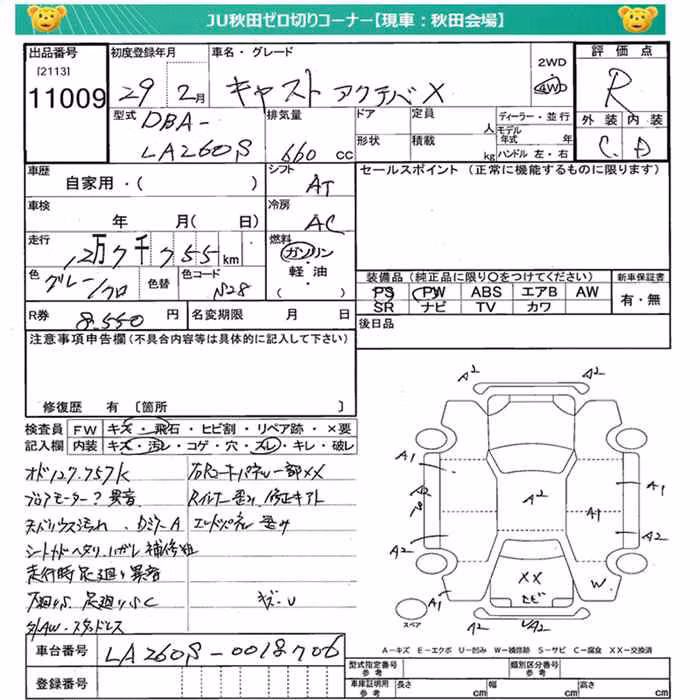 JU秋田ゼロ切りコーナー【現車：秋田会場】
出品番号
[2113]
11009
初度登録年月
29 2月
車名・グレード
キャスト アクテバX
2WD
4WD
評価点
R
外装 内装
C D
型式
DBA-
LA260S
排気量
660 cc
ドア
定員
人
形状
積載
kg
ディーラー・並行
モデル年式 年
ハンドル 左・右
車歴
自家用・( )
シフト
AT
セールスポイント (正常に機能するものに限ります)
車検
年 月( 日)
冷房
AC
走行
12万7千755km
燃料
ガソリン
・
軽油
( )
色
グレー/クロ
色替
色コード
N28
装備品 (純正品に限り○をつけてください)
新車保証書
PS PW ABS エアB AW
SR ナビ TV カワ
有・無
R券
8,550円
名変期限 月 日
後日品
注意事項申告欄(不具合内容等は具体的に記入して下さい)
修復歴 有 〔箇所 〕
検査員
記入欄
FW キズ・飛石・ヒビ割・リペア跡・×要
内装 キズ・汚レ・コゲ・穴・スレ・キレ・破レ
オド127.757K
ブロアモーター?異音
天バリウス汚れ
シートカドヘタリ
補修粗
走行時足廻り異音
下廻りS 足廻りSC
キズ・U
エンドパネル歪み
A2 A2
A1
A2
A2
A1
A1
A2
A2
A1
XX
セビ
W
A2
スペア
A-キズ E-エクボ U-凹み W-補修跡 S-サビ C-腐食 XX-交換済
車台番号
LA260S-0018706
登録番号
型式指定番号
参考
類別区分番号
参考
車庫証明用
参考
長さ cm
幅 cm
高さ cm